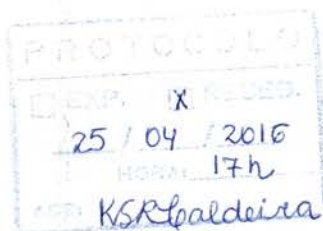 PROTOCOLO
EXP. X RECEB.
25 / 04 / 2016
HORA: 17h
ASS: KSRCaldeira